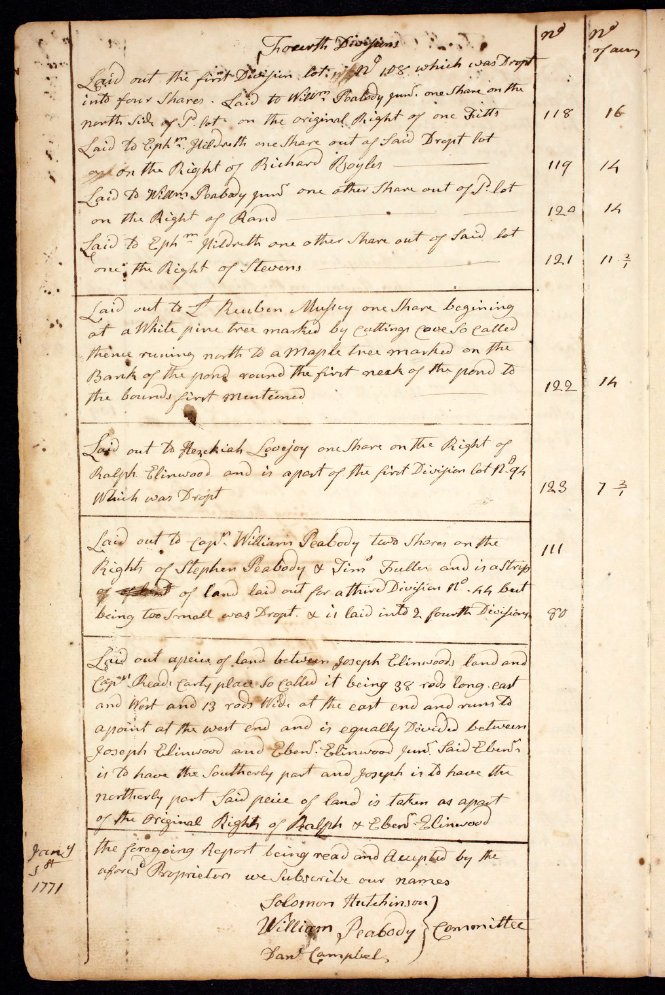 Fourth Divisions
no
no of acrs
Laid out the first Division lot no 108 which was Dropt
into four Shares. Laid to Willm Peabody Junr. one Share on the
north Side of Sd lot on the original Right of one Fitts 118 16
Laid to Ephm Hildreth one Share out of Said Dropt lot
on the Right of Richard Boyles 119 14
Laid to Willm Peabody Junr one other Share out of Sd. lot
on the Right of Rand 120 14
Laid to Ephm Hildreth one other Share out of Said lot
one the Right of Stevens 121 11 2/1
Laid out to Lt Reuben Mussey one Share begining
at a White pine tree marked by Cuttings Cove So Called
thence runing north to a Maple tree marked on the
Bank of the pond round the first neck of the pond to
the bounds first mentioned 122 14
Laid out to Hezekiah Lovejoy one Share on the Right of
Ralph Elinwood and is apart of the first Division lot No 94
Which was Dropt 123 7 3/1
Laid out to Capn. William Peabody two Shares on the 111
Rights of Stephen Peabody & Timo Fuller and is a Strip
of of land laid out for a third Division No. 44 but
being too Small was Dropt. & is laid into 2 fourth Divisions 80
Laid out apeice of land between Joseph Elinwoods land and
Capns. Reads Carty place So Called it being 38 rods long east
and West and 13 rods Wide at the east end and runs to
apoint at the west end and is equally Divided between
Joseph Elinwood and Ebenr. Elinwood Junr. Said Ebenr
is to have the Southerly part and Joseph is to have the
northerly part Said peice of land is taken as apart
of the Original Rights of Ralph & Ebenr. Elinwood
Jany
1st
1771
the foregoing Report being read and Accepted by the
aforesd Proprietors we Subscribe our names
Solomon Hutchinson
William Peabody } Committee
Danl Campbel,